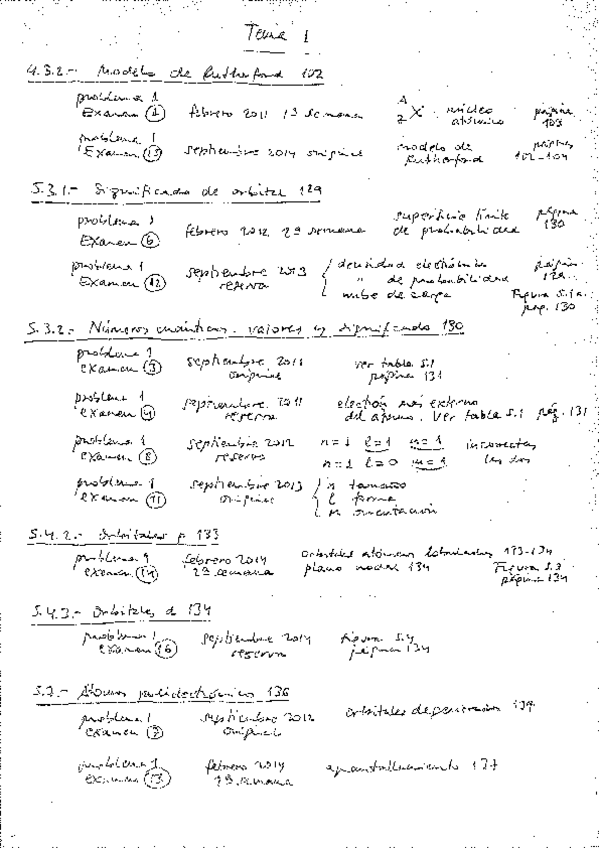 Tema 1
4.3.2.- Modelo de Rutherford 102
problema 1 febrero 2011 1ª semana A Z X núcleo atómico página 103
Examen 1
problema 1 septiembre 2014 original modelo de Rutherford páginas 102-104
Examen 15
5.3.1.- Significado de orbital 129
problema 1 febrero 2012 2ª semana superficie límite de probabilidad página 130
Examen 6
problema 1 septiembre 2013 reserva densidad electrónica página 129
Examen 12 " de probabilidad
nube de carga Figura 5.1a. pág. 130
5.3.2.- Números cuánticos. valores y significado 130
problema 1 septiembre 2011 original ver tabla 5.1 página 131
examen 3
problema 1 septiembre 2011 reserva electrón más externo del átomo. Ver tabla 5.1 pág. 131
examen 4
problema 1 septiembre 2012 reserva n=1 l=1 m=1 incorrectas
examen 8 n=1 l=0 m=1 las dos
problema 1 septiembre 2013 original n tamaño
examen 11 l forma
m orientación
5.4.2.- Orbitales p 133
problema 1 febrero 2014 2ª semana orbitales atómicos 133-134
examen 14 plano nodal 134 Figura 5.3 página 134
5.4.3.- Orbitales d 134
problema 1 septiembre 2014 reserva figura 5.4 página 134
examen 16
5.7.- Átomos polielectrónicos 136
problema 1 septiembre 2012 original orbitales de penetración
examen
problema 1 febrero 2014 semana apantallamiento 137
examen 13